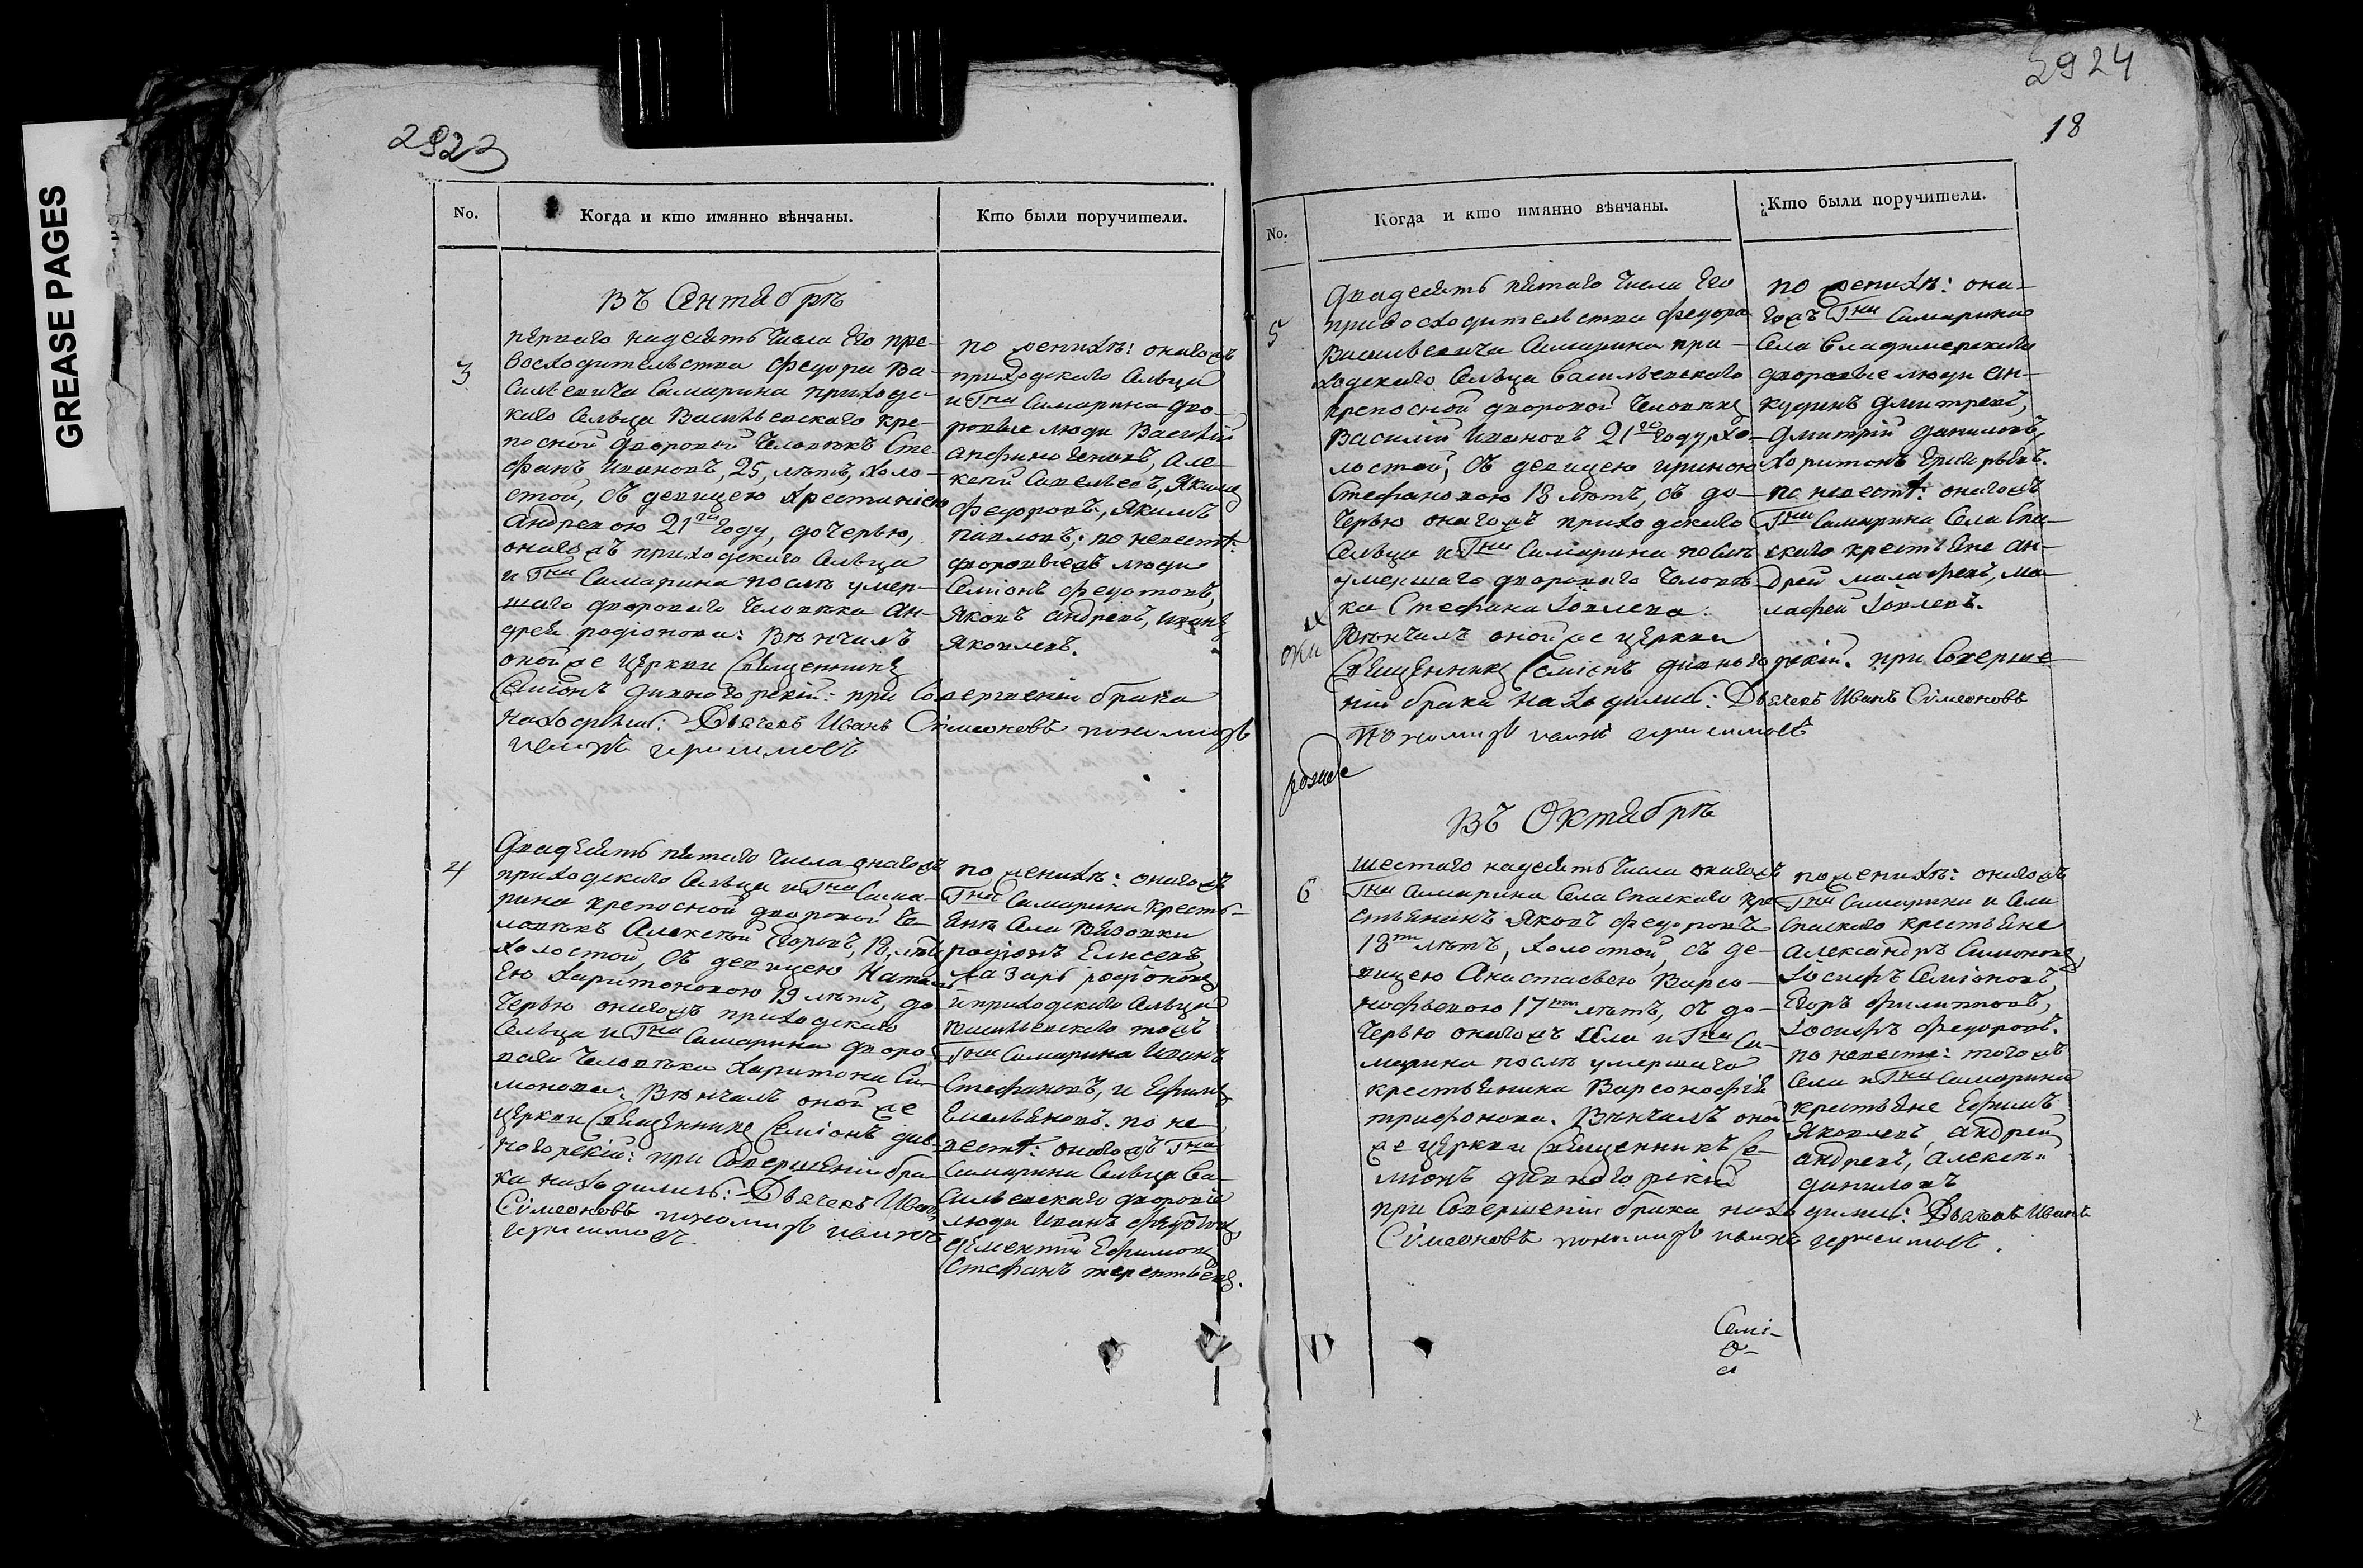 GREASE PAGES
2923
No.
Когда и кто имянно вѣнчаны.
Кто были поручители.
Въ Сентябрѣ
3
перваго надесять числа Его пре-
восходительства Федора Ва-
сильевича Самарина приходс-
каго Сельца Васильевскаго кре-
посной дворовой человѣкъ Сте-
фанъ Ивановъ, 25, лѣтъ, холо-
стой, съ девицею Хрестиниею
Андреевою 21го году, дочерью,
онагожъ приходскаго Сельца
и Гна Самарина послѣ умер-
шаго дворового человѣка Ан-
дрея родіонова: Вѣнчалъ
оной же церкви Священникъ
Семіонъ дивногорскій: при Совершеніи брака
находились: Дьячекъ Иванъ Симеоновъ пономарь
по женихѣ: онагожъ
приходскаго Сельца
и Гна Самарина дво-
ровые люди Василій
Алексей Савельевъ, Якимъ
Федоровъ, Якимъ
павловъ; по невестѣ:
дворовыежъ люди
Семіонъ Федотовъ,
Яковъ андреевъ, иванъ
Яковлевъ.
4
Двадесять пятаго числа онагожъ
приходскаго Сельца и Гна Сама-
рина крепосной дворовой че-
ловѣкъ Алексѣй Егоровъ, 18, лѣтъ
холостой, Съ девицею Натал
Ею Харитоновою 19 лѣтъ, до
черью онагожъ приходскаго
Сельца и Гна Самарина дворо-
ваго человѣка Харитона Си-
монова: Вѣнчалъ оной же
церкви Священникъ Семіонъ див-
ногорскій: при Совершеніи бра-
ка находились: Дьячекъ Иванъ
Симеоновъ пономарь
по женихѣ: онагожъ
Гна Самарина кресть-
яне Села Вязовки
родіонъ Елисеевъ,
Лазарь родіоновъ
и приходскаго Сельца
Васильевскаго тожъ
Гна Самарина Иванъ
Стефановъ, и Ефимъ
Емельяновъ. по не
вестѣ: онагожъ Гна
Самарина Сельца Ва-
сильевскаго дворовіе
люди Иванъ Федотовъ
дементій Ефимовъ
Стефанъ терентьевъ.
2924
18
No.
Когда и кто имянно вѣнчаны.
Кто были поручители.
5
Двадесять пятаго числа Его
привосходительства Федора
Васильевича Самарина при-
ходскаго Сельца Васильевскаго
крепосной дворовой человѣкъ
Василій Ивановъ 21го году, хо-
лостой, Съ девицею ириною
Стефановою 18 лѣтъ, съ до-
черью онагожъ приходскаго
Сельца и Гна Самарина послѣ
умершаго дворового человѣ
ка Стефана Іовлева:
Вѣнчалъ оной же церкви
Священникъ Семіонъ дивногорскій. при Соверше
ніи брака находились: Дьячекъ Иванъ Симеоновъ
по женихѣ: она-
гожъ Гна Самарина
Села Владимерскаго
дворовые люди Ан-
кудинъ дмитреевъ,
дмитрій даниловъ,
Харитонъ Григорьевъ.
по невестѣ: онагожъ
Гна Самарина Села Спа-
скаго крестьяне Ан-
дрей малафеевъ, ма-
лафей Іовлевъ.
Въ Октябрѣ
6
шестаго надесять числа онагожъ
Гна Самарина Села Спаскаго кре
стьянинъ Яковъ Федоровъ
18ти лѣтъ, холостой, съ де-
вицею Анастасьею Варсо-
нофьевою 17ти лѣтъ, съ до-
черью онагожъ Села и Гна Са-
марина послѣ умершаго
крестьянина Варсонофія
трифонова. Вѣнчалъ оной
же церкви Священникъ Се-
міонъ дивногорскій
при Совершеніи брака находились: Дьячекъ Иванъ
Симеоновъ пономарь
по женихѣ: онагожъ
Гна Самарина и Села
Спаскаго крестьяне
Александръ Симоновъ,
Іосифъ Семіоновъ,
Егоръ Филипповъ,
Іосифъ Федоровъ.
по невестѣ: тогожъ
Села и Гна Самарина
крестьяне Ефимъ
Яковлевъ, андрей
андреевъ, Алексѣй
даниловъ
Семі-
о-